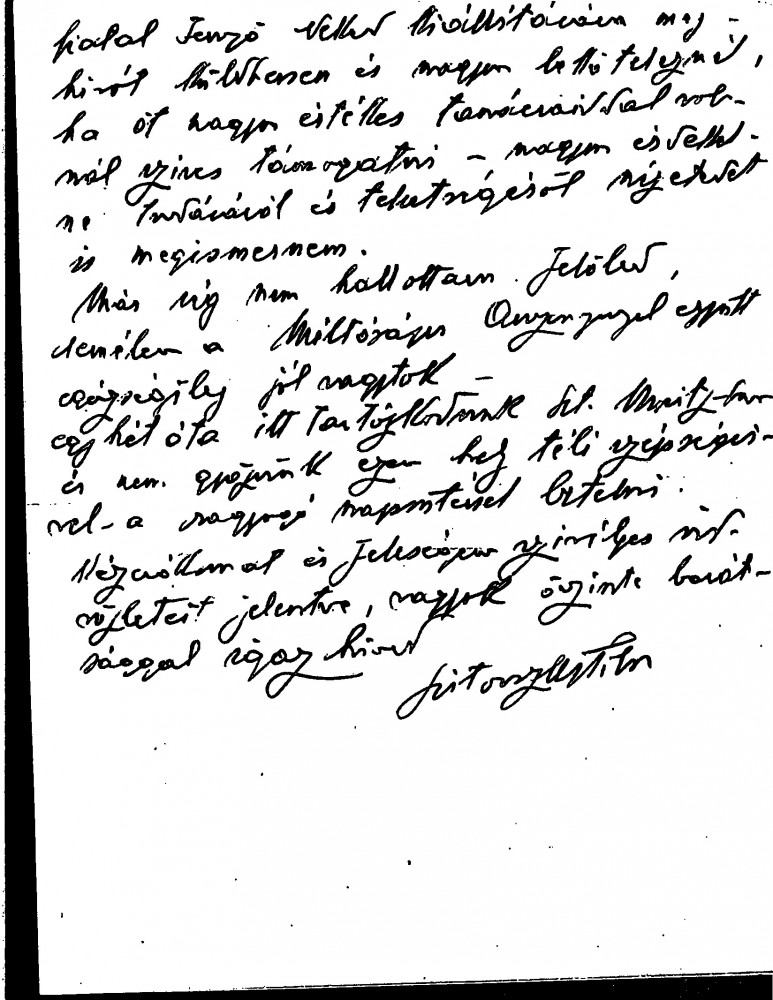 fiatal Jenző Veled kiállítására meg-
hívót küldhessen és nagyon leköteleznél,
ha őt nagyon értékes tanácsaiddal vol-
nál szíves támogatni – nagyon érdekel-
ne tudásáról és tehetségéről nézetedet
is megismernem.
Már rég nem hallottam Felőled,
remélem a Méltóságos Asszonnyal együtt
egészségileg jól vagytok –
egy hét óta itt tartózkodunk St. Moritz-ban
és nem győzünk ezen hely téli szépségei-
vel – a ragyogó napsütéssel betelni.
Kézcsókomat és Feleségem szívélyes üd-
vözletét jelentve, vagyok őszinte barát-
sággal igaz híved